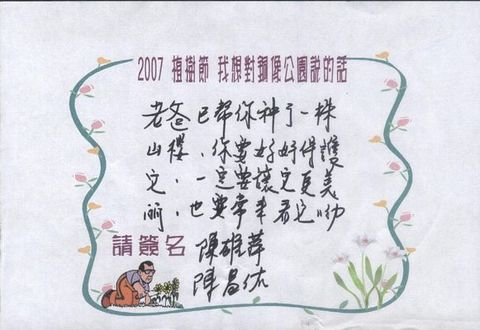 2007 植樹節 我想對銅像公園說的話
老爸已幫你种了一株
山櫻，你要好好保護
它，一定要讓它更美
麗，也要常來看它喲
請簽名 陳雄萍
陳昌佑